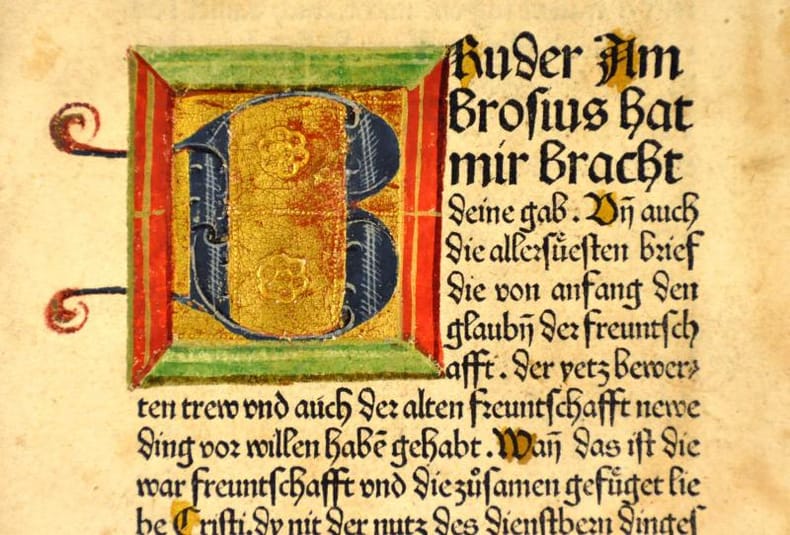 Bruder Am
brosius hat
mir bracht
deine gab. Vn̄ auch
die allersuͤesten brief
die von anfang den
glaubn̄ der freuntsch
afft. der yetz bewer⸗
ten trew vnd auch der alten freuntschafft newe
ding vor willen habē gehabt. Wan̄ das ist die
war freuntschafft vnd die zuͦsamen gefuͤget lie
be Cristi. dy nit der nutz des dienstbern dinges